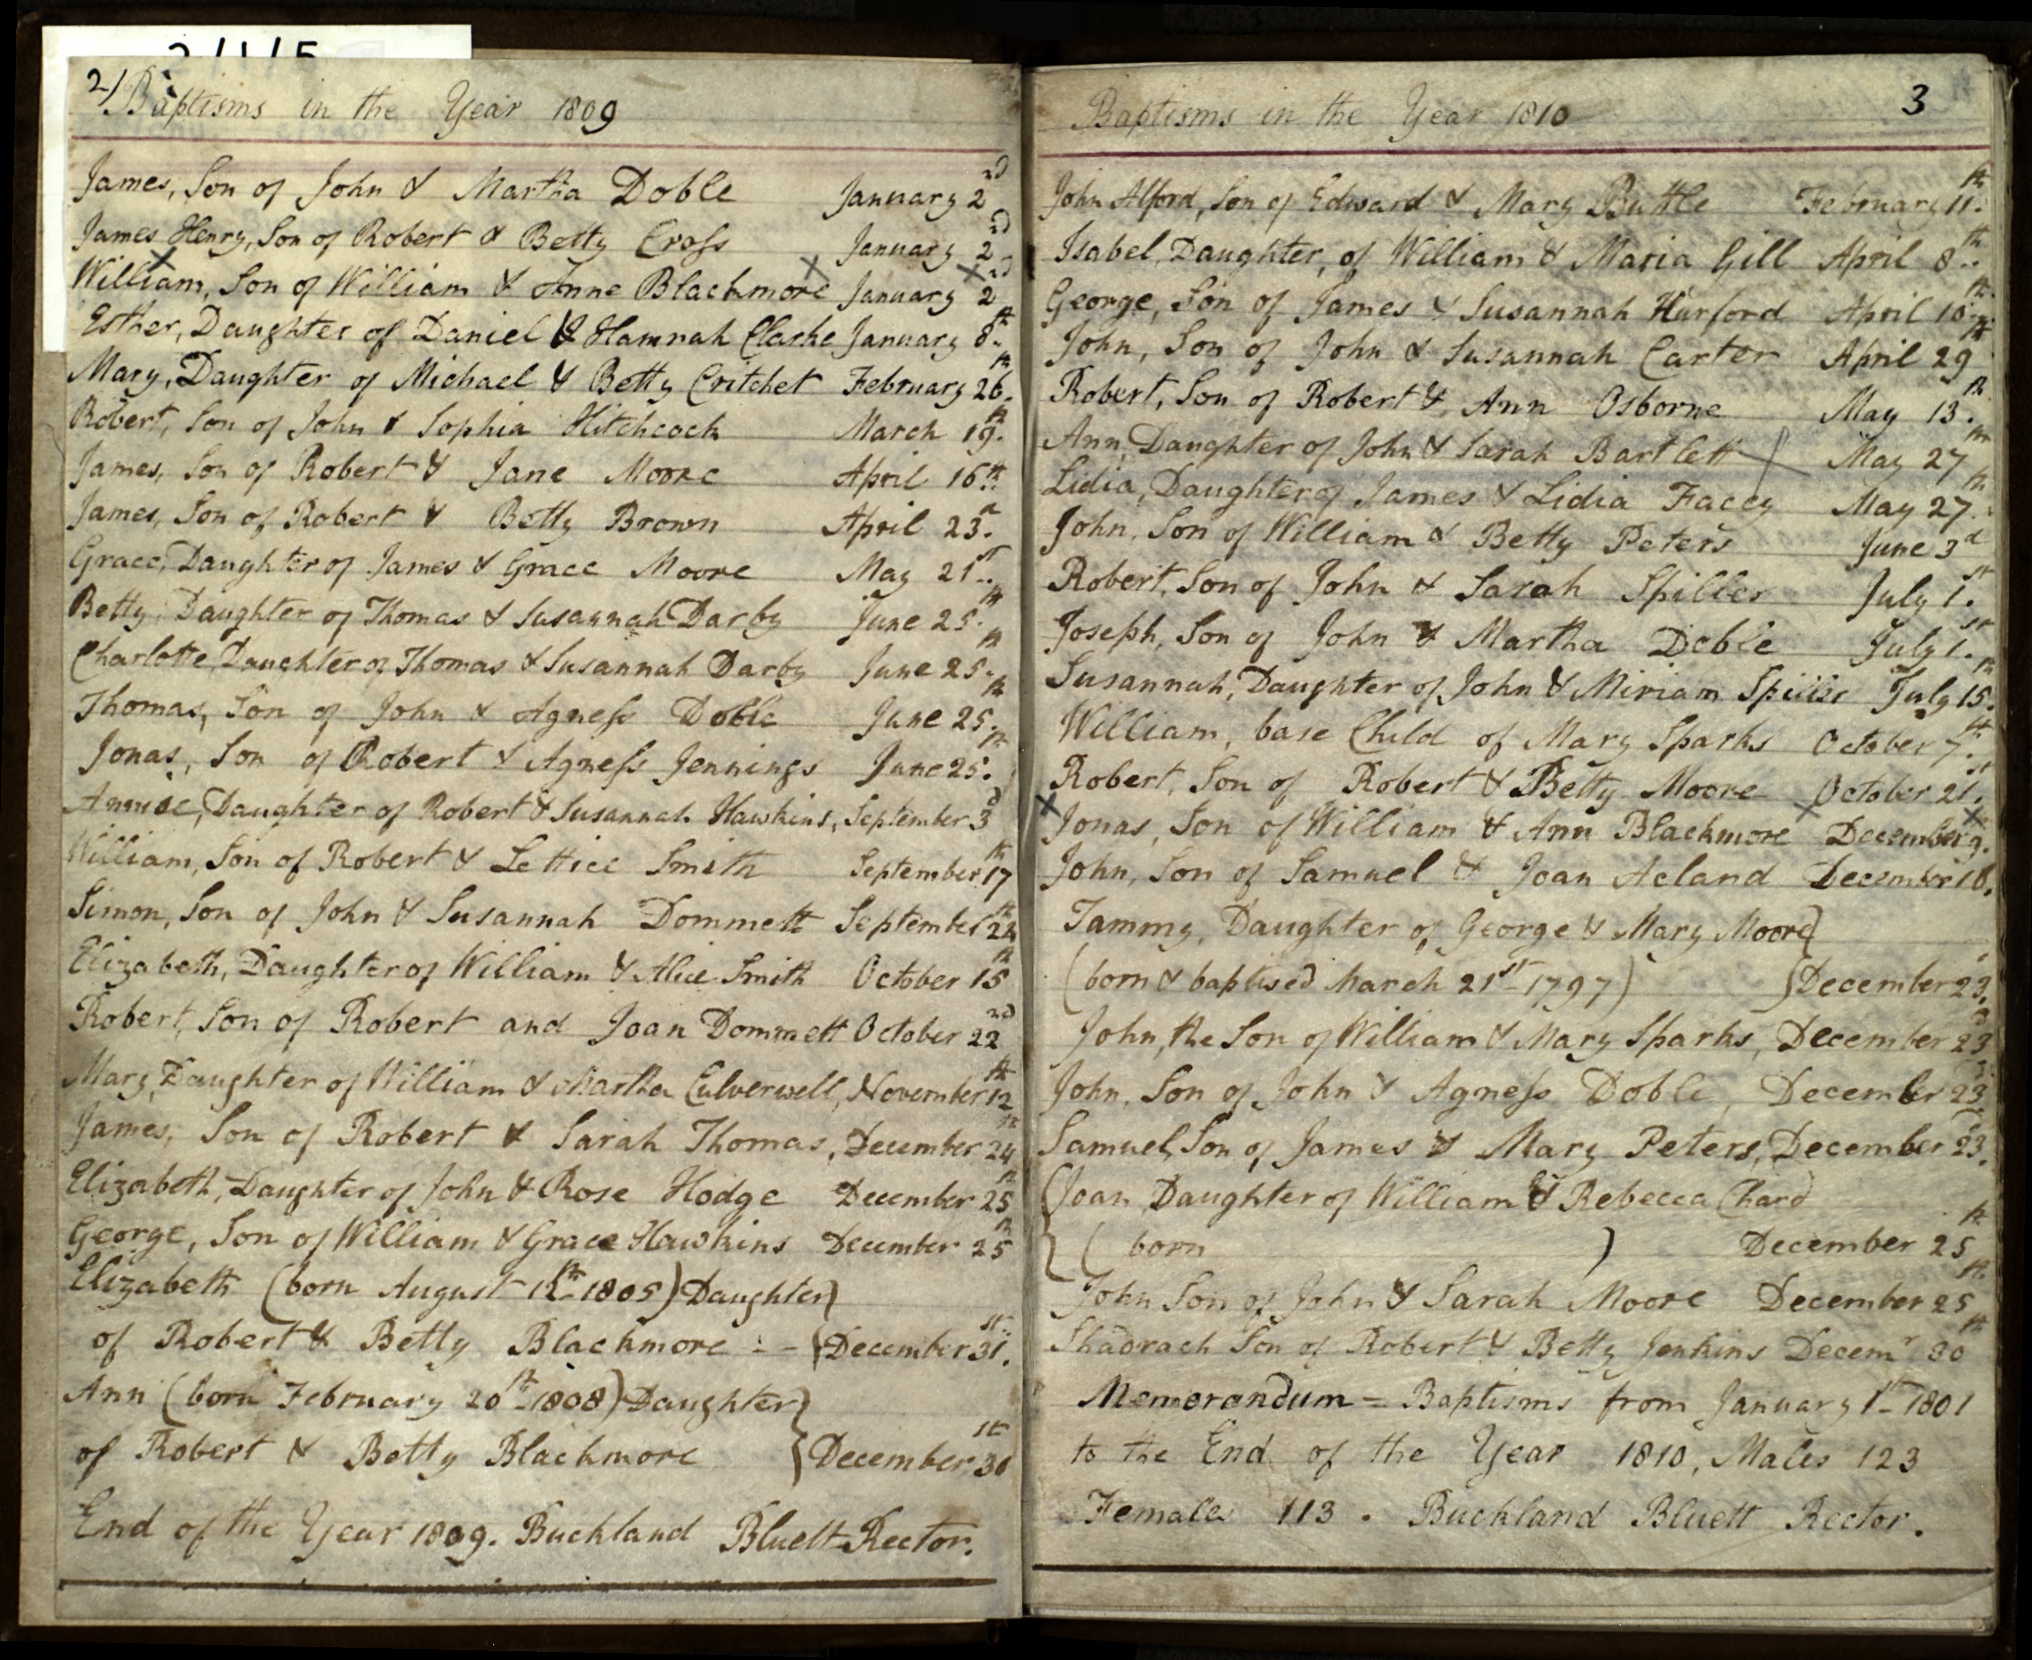 2/1/5
2) Baptisms in the Year 1809
James, Son of John & Martha Doble January 2nd
James Henry, Son of Robert & Betty Cross January 2nd
William, Son of William & Anne Blackmore January 2nd
Esther, Daughter of Daniel & Hannah Clarke January 8th
Mary, Daughter of Michael & Betty Critchet February 26th
Robert, Son of John & Sophia Hitchcock March 19th
James, Son of Robert & Jane Moore April 16th
James, Son of Robert & Betty Brown April 23d
Grace, Daughter of James & Grace Moore May 21st
Betty, Daughter of Thomas & Susannah Darby June 25th
Charlotte, Daughter of Thomas & Susannah Darby June 25th
Thomas, Son of John & Agness Doble June 25th
Jonas, Son of Robert & Agness Jennings June 25th
Daughter of Robert & Susannah Hawkins, September 3d
William, Son of Robert & Lettice Smith September 17th
Simon, Son of John & Susannah Dommett September 24th
Elizabeth, Daughter of William & Alice Smith October 15th
Robert, Son of Robert and Joan Dommett October 22nd
Mary, Daughter of William & Martha Culverwell, November 12th
James, Son of Robert & Sarah Thomas, December 24th
Elizabeth, Daughter of John & Rose Hodge December 25th
George, Son of William & Grace Hawkins December 25th
Elizabeth (born August 1805) Daughter}
of Robert & Betty Blackmore - {December 31st
Ann (born February 20th 1808) Daughter}
of Robert & Betty Blackmore {December 31st
End of the Year 1809. Buckland Bluett Rector.
Baptisms in the Year 1810 3
John Alford, Son of Edward & Mary Buttle February 11th
Isabel, Daughter, of William & Maria Gill April 8th
George, Son of James & Susannah Hurford April 10th
John, Son of John & Susannah Carter April 29th
Robert, Son of Robert & Ann Osborne May 13th
Ann, Daughter of John & Sarah Bartlett May 27th
Lidia, Daughter of James & Lidia Facey May 27th
John, Son of William & Betty Peters June 3d
Robert, Son of John & Sarah Spiller July 1st
Joseph, Son of John & Martha Doble July 1st
Susannah, Daughter of John & Miriam Spiller July 15th
William, base Child of Mary Sparks October 7th
Robert, Son of Robert & Betty Moore October 21st
Jonas, Son of William & Ann Blackmore December 9th
John, Son of Samuel & Joan Acland December 16.
Tammy, Daughter of George & Mary Moore}
(born & baptised March 21st 1797) }December 23d
John, the Son of William & Mary Sparks, December 23d
John, Son of John & Agness Doble, December 23d
Samuel, Son of James & Mary Peters, December 23d
(Joan, Daughter of William & Rebecca Chard
{ ( born ) December 25th
John Son of John & Sarah Moore December 25th
Shadrach Son of Robert & Betty Jenkins Decemr 30th
Memorandum = Baptisms from January 1st 1801
to the End of the Year 1810, Males 123
Females 113. Buckland Bluett Rector.